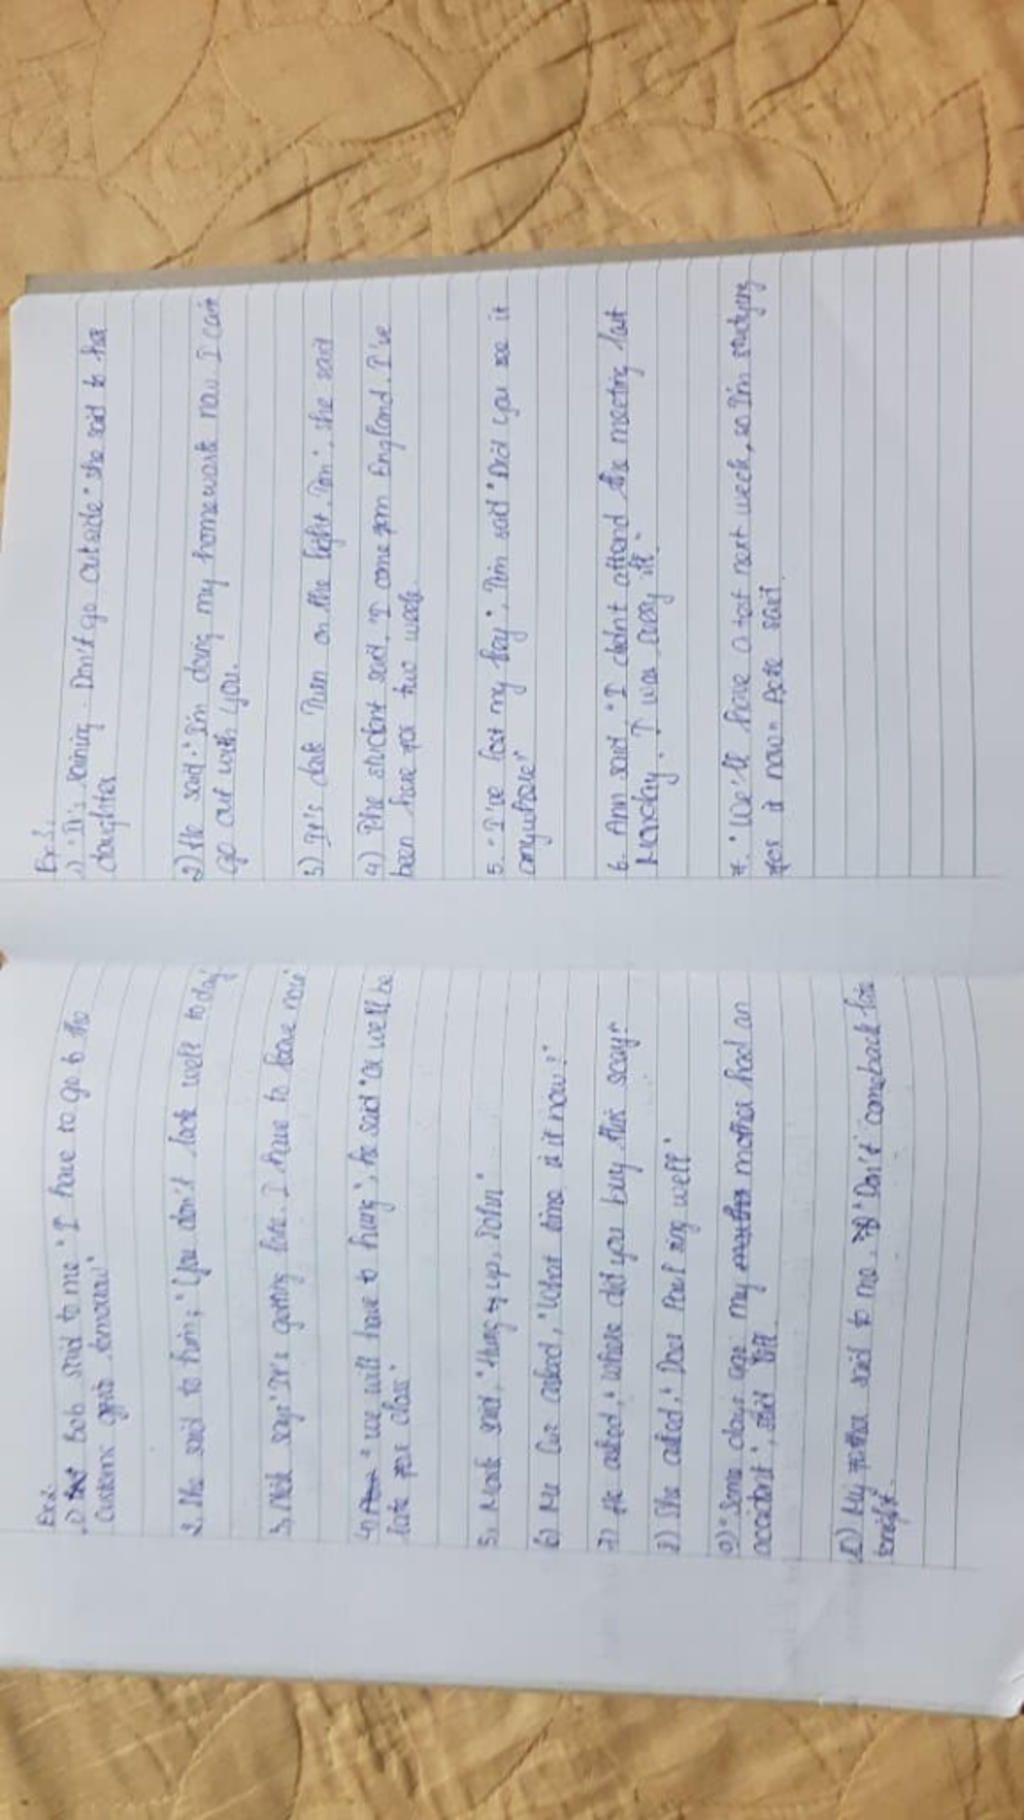 Ex 2.
1) Bob said to me "I have to go to the
customs tomorrow"
2. She said to him; "You don't look well today
3, Nick says "It's getting late. I have to leave now"
4) "we will have to hurry", he said "or we'll be
late for class"
5, Mark said, "Hurry up, John"
6) Mr Cuz asked, "What time is it now?"
7) He asked, "Where did you buy this scarf?
8) She asked, "Does Paul sing well"
9) "Some days ago my mother had an
accident", said Bill
10) My father said to me, "Don't comeback late
tonight.
Ex 3.
1) "It's raining. Don't go outside" she said to her
daughter
2) He said: "I'm doing my homework now. I can't
go out with you.
3) It's dark Turn on the light, Tom", she said
4) The student said, "I come from England. I've
been here for two weeks.
5. "I've lost my key", Tim said "Did you see it
anywhere?"
6. Ann said, "I didn't attend the meeting last
Monday. I was very ill."
7. "We'll have a test next week, so I'm studying
for it now" Pete said.